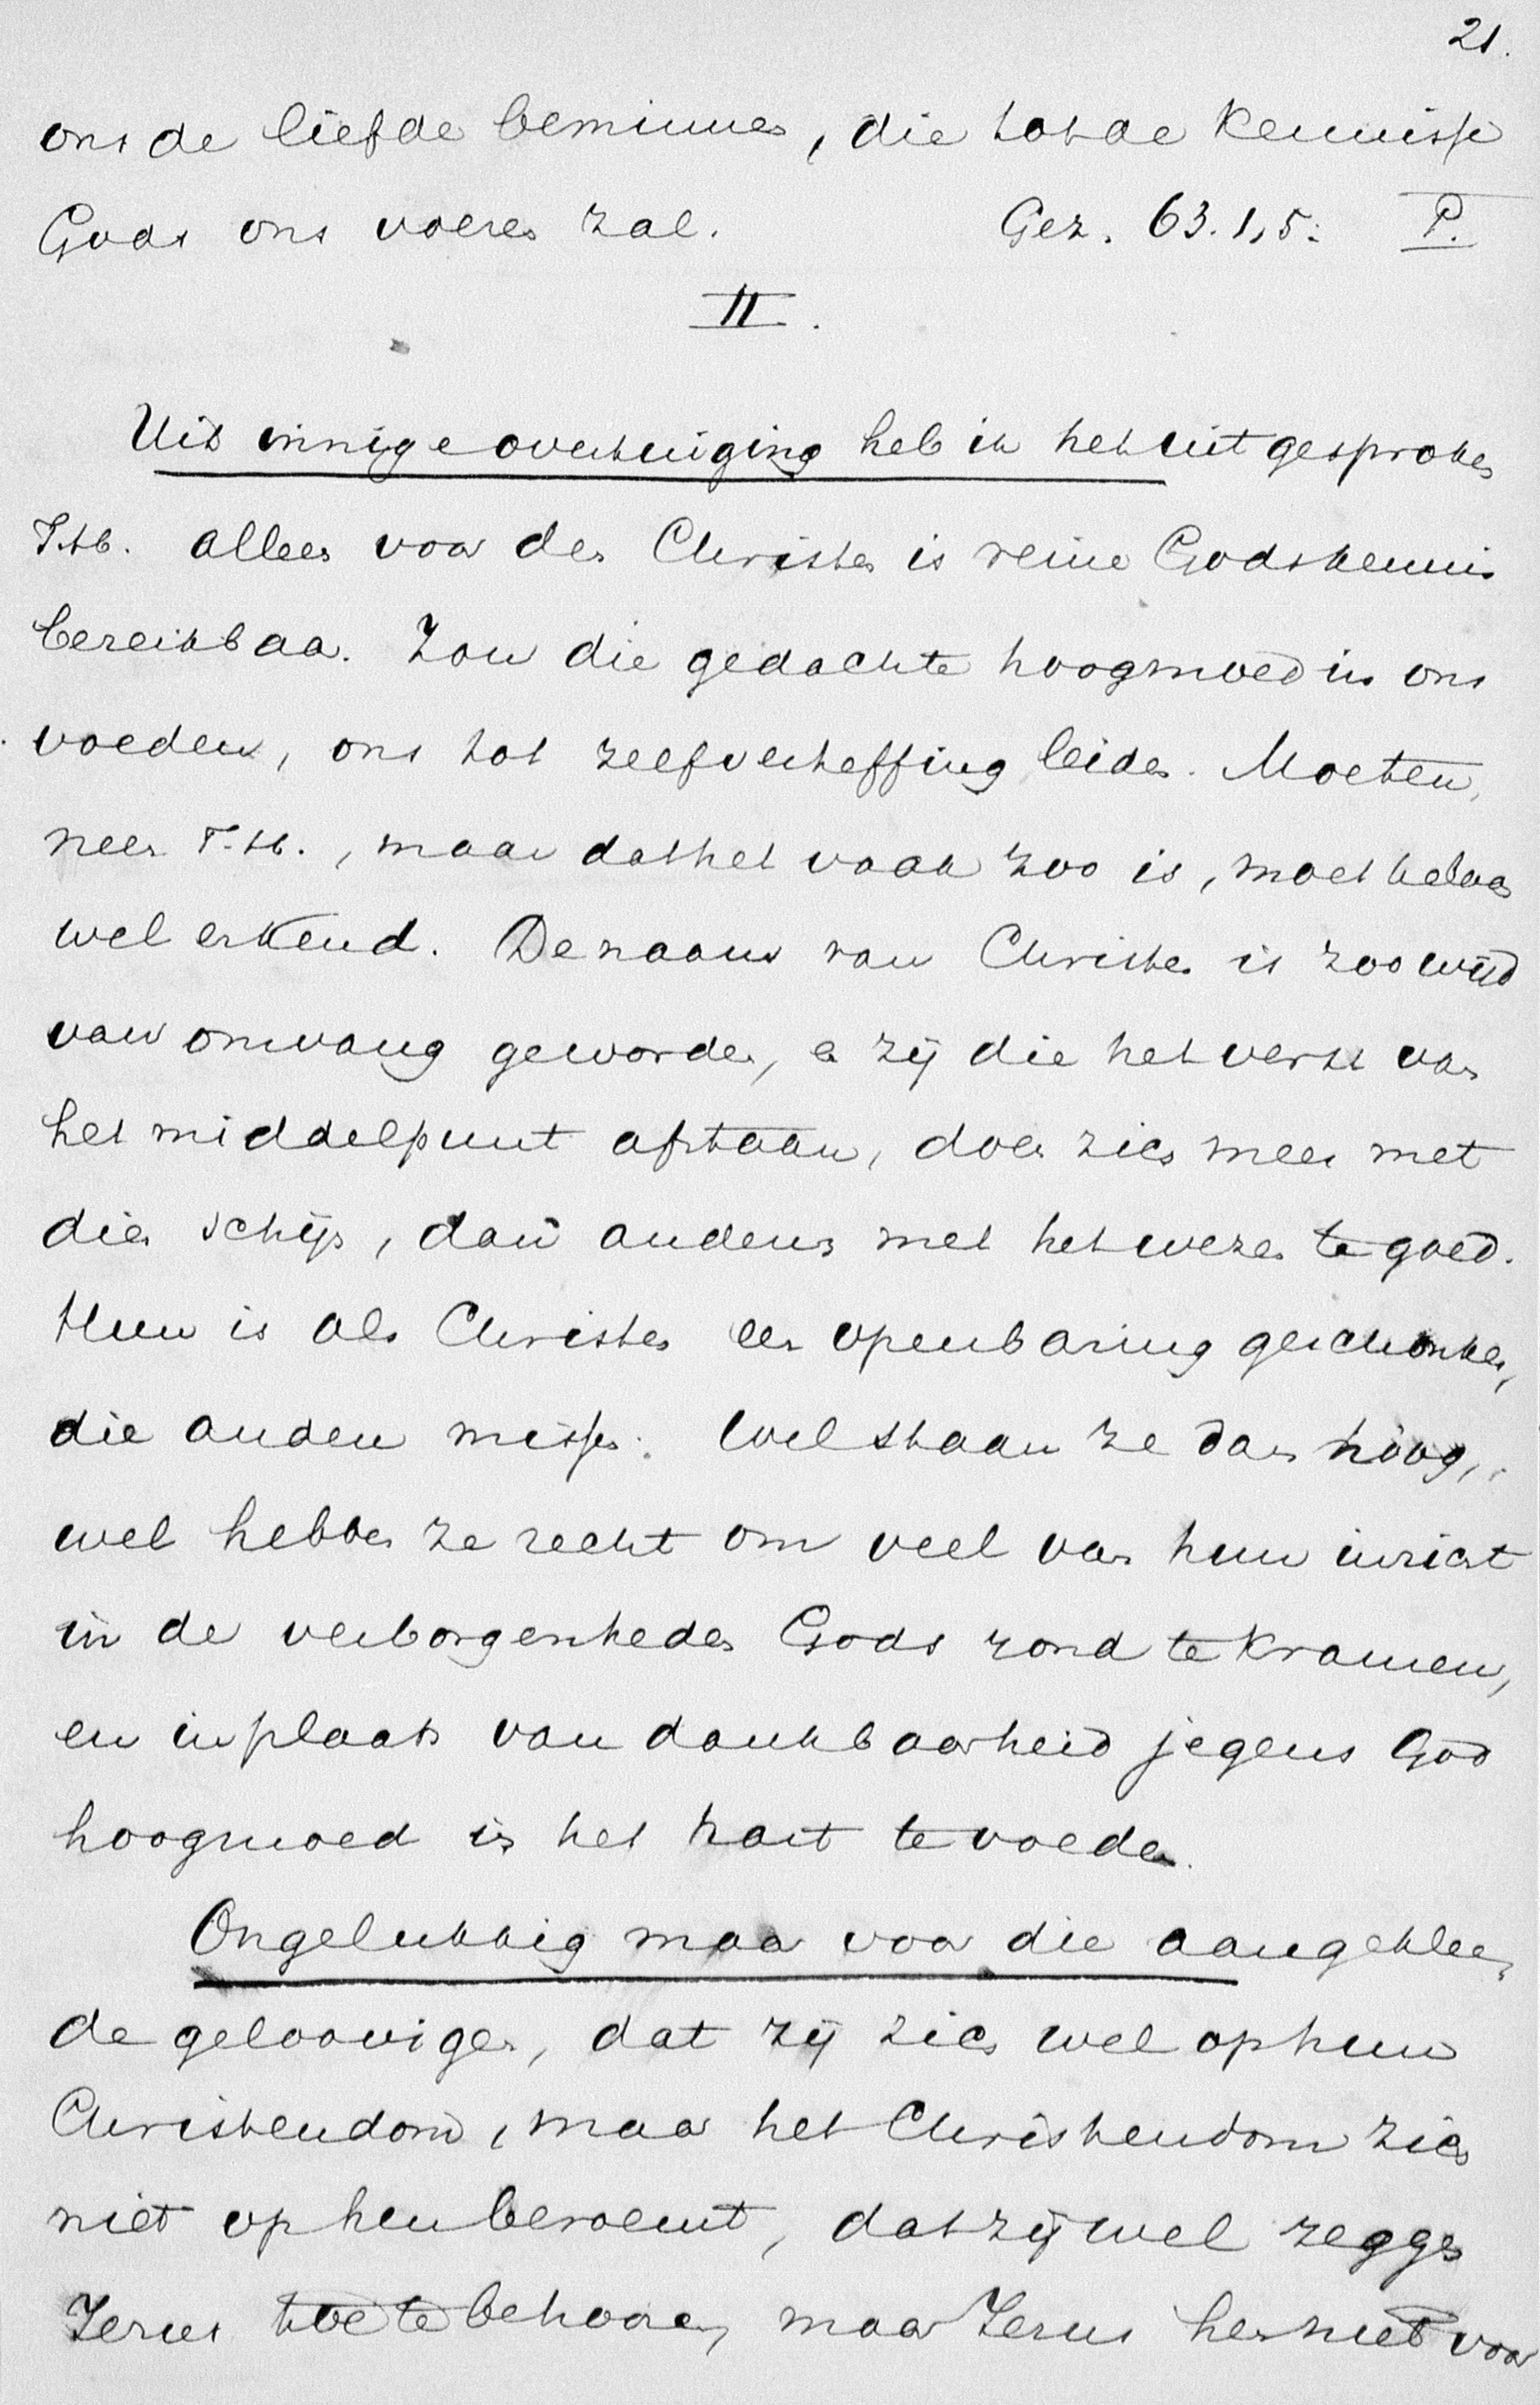 21.
ons de liefde beminnen, die tot de kennisse
Gods ons voeren zal. Gez. 63.1,5. P.
II.
Uit innige overtuiging heb ik het uitgesproken
T.H. alleen voor den Christen is reine Godskennis
bereikbaar. Zou die gedachte hoogmoed in ons
voeden, ons tot zelfverheffing leiden. Moeten,
neen T.H., maar dat het vaak zoo is, moet helaas
wel erkend. De naam van Christen is zoo wijd
van omvang geworden, en zij die het verst van
het middelpunt afstaan, doen zich meer met
dien schijn, dan anderen met het wezen te goed.
Hun is als Christen een openbaring geschonken,
die anderen missen. Wel staan ze dan hoog,
wel hebben ze recht om veel van hun inzicht
in de verborgenheden Gods rond te kramen,
en in plaats van dankbaarheid jegens God
hoogmoed in het hart te voeden.
Ongelukkig maar voor die aangeklee-
de geloovigen, dat zij zich wel op hun
Christendom, maar het Christendom zich
niet op hen beroemt, dat zij wel zeggen
Jezus toe te behooren, maar Jezus hen niet voor